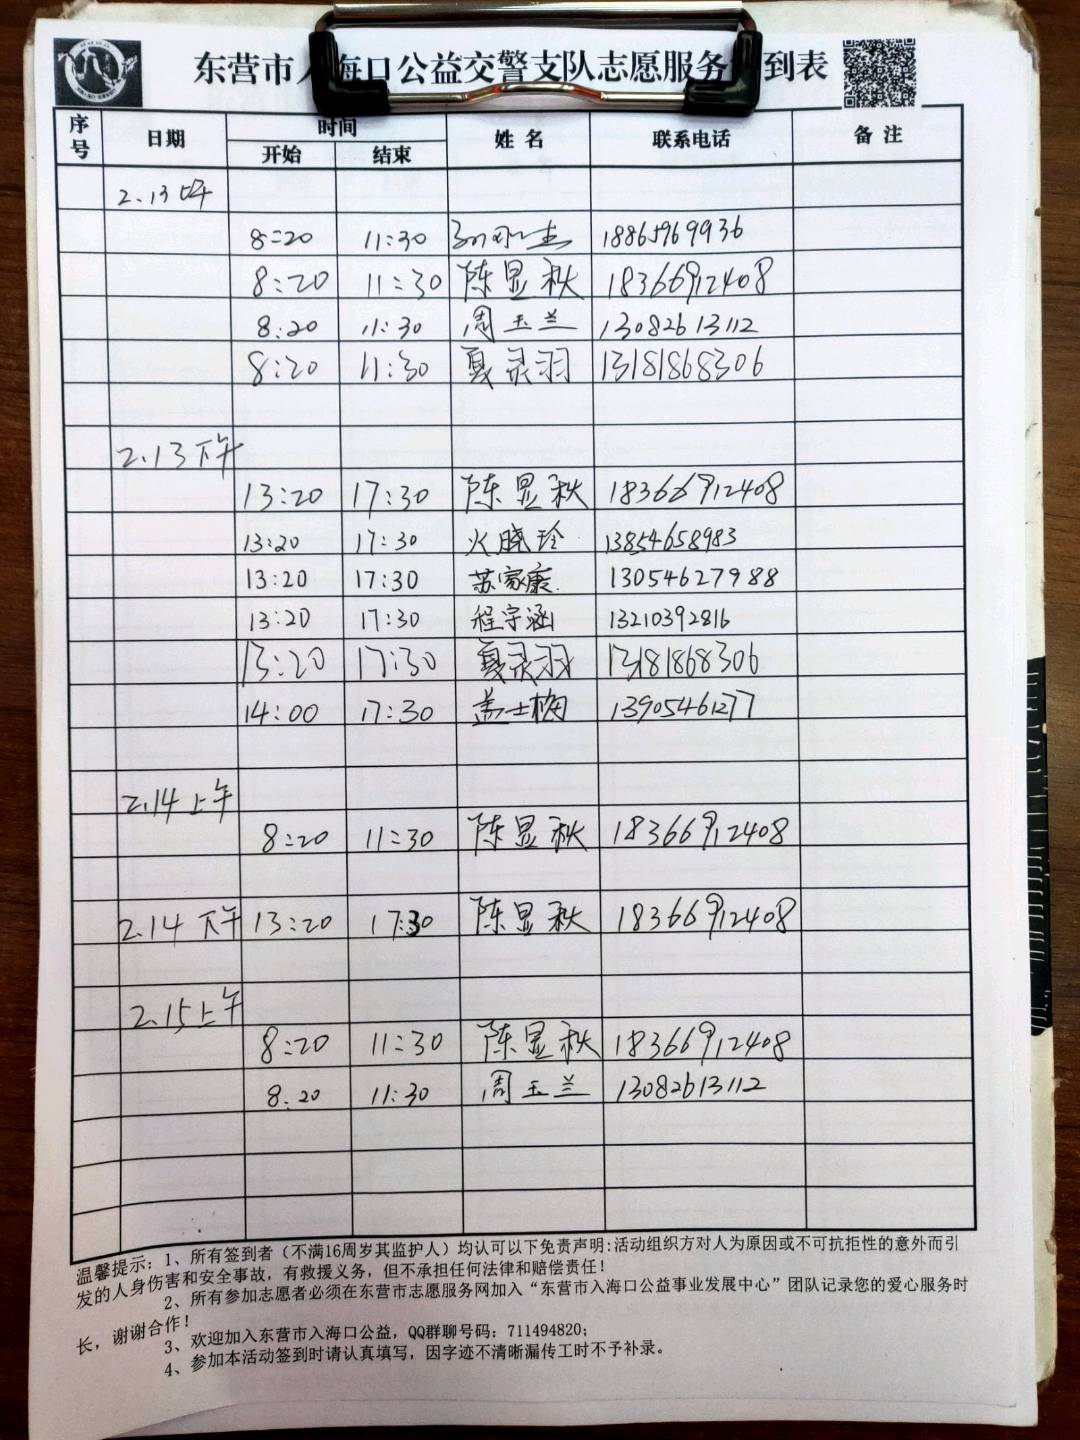 东营市入海口公益交警支队志愿服务签到表
序号 日期 时间 开始 结束 姓名 联系电话 备注
2.13上午
8:20 11:30 18865969936
8:20 11:30 陈显秋 18366912408
8:20 11:30 周玉兰 13082613112
8:20 11:30 夏灵羽 13181868306
2.13下午
13:20 17:30 陈显秋 18366912408
13:20 17:30 火晓玲 13854658983
13:20 17:30 苏家康 13054627988
13:20 17:30 程宇涵 13210392816
13:20 17:30 夏灵羽 13181868306
14:00 17:30 盖士梅 13905461277
2.14上午
8:20 11:30 陈显秋 18366912408
2.14下午 13:20 17:30 陈显秋 18366912408
2.15上午
8:20 11:30 陈显秋 18366912408
8:20 11:30 周玉兰 13082613112
温馨提示:1、所有签到者(不满16周岁其监护人)均认可以下免责声明:活动组织方对人为原因或不可抗拒性的意外而引
发的人身伤害和安全事故,有救援义务,但不承担任何法律和赔偿责任!
2、所有参加志愿者必须在东营市志愿服务网加入“东营市入海口公益事业发展中心”团队记录您的爱心服务时
长,谢谢合作!
3、欢迎加入东营市入海口公益,QQ群聊号码:711494820;
4、参加本活动签到时请认真填写,因字迹不清晰漏传工时不予补录。